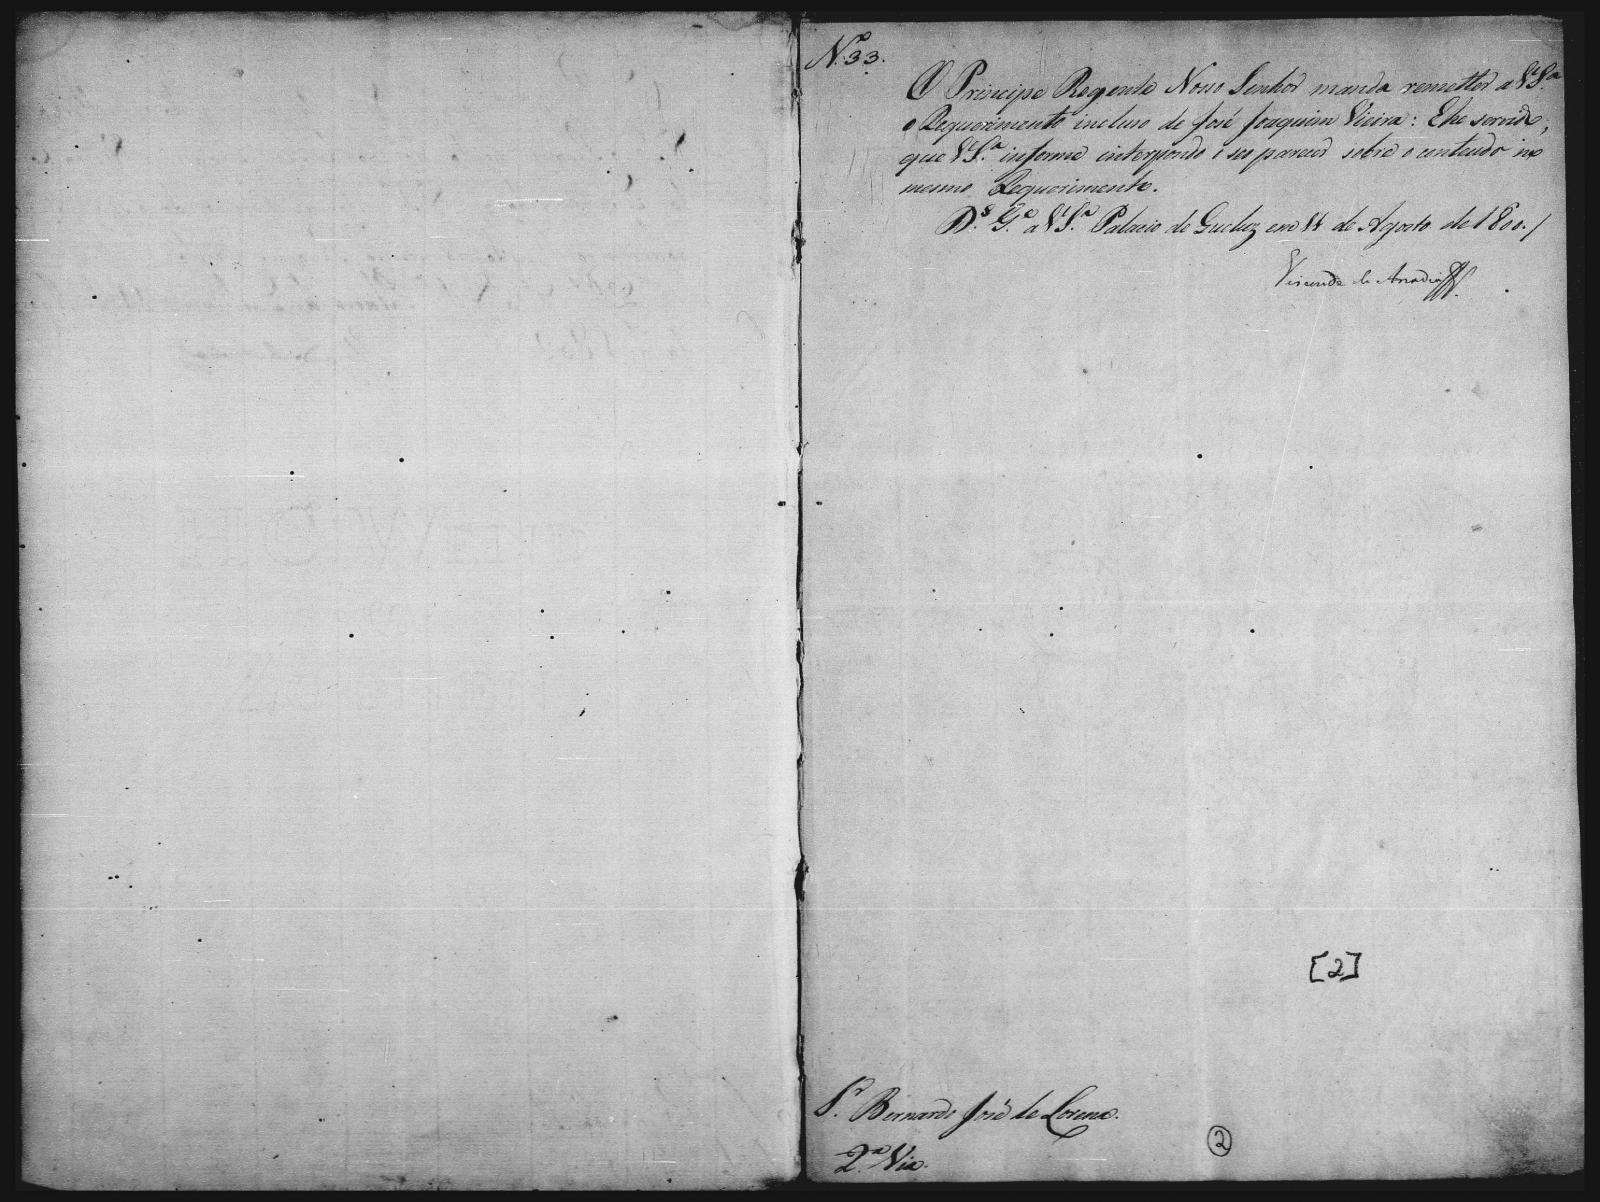 N.º 33.
O Principe Regente Nosso Senhor manda remetter a V. S.ª
o Requerimento incluso de José Joaquim Vieira: E he servido,
que V. S.ª informe interpondo o seo parecer sobre o conteudo no
mesmo Requerimento.
D.s G.e a V. S.ª Palacio de Queluz em de Agosto de 1800. /
Visconde de Anadia
[2]
S.r Bernardo José de Lorena.
2.ª Via.
2